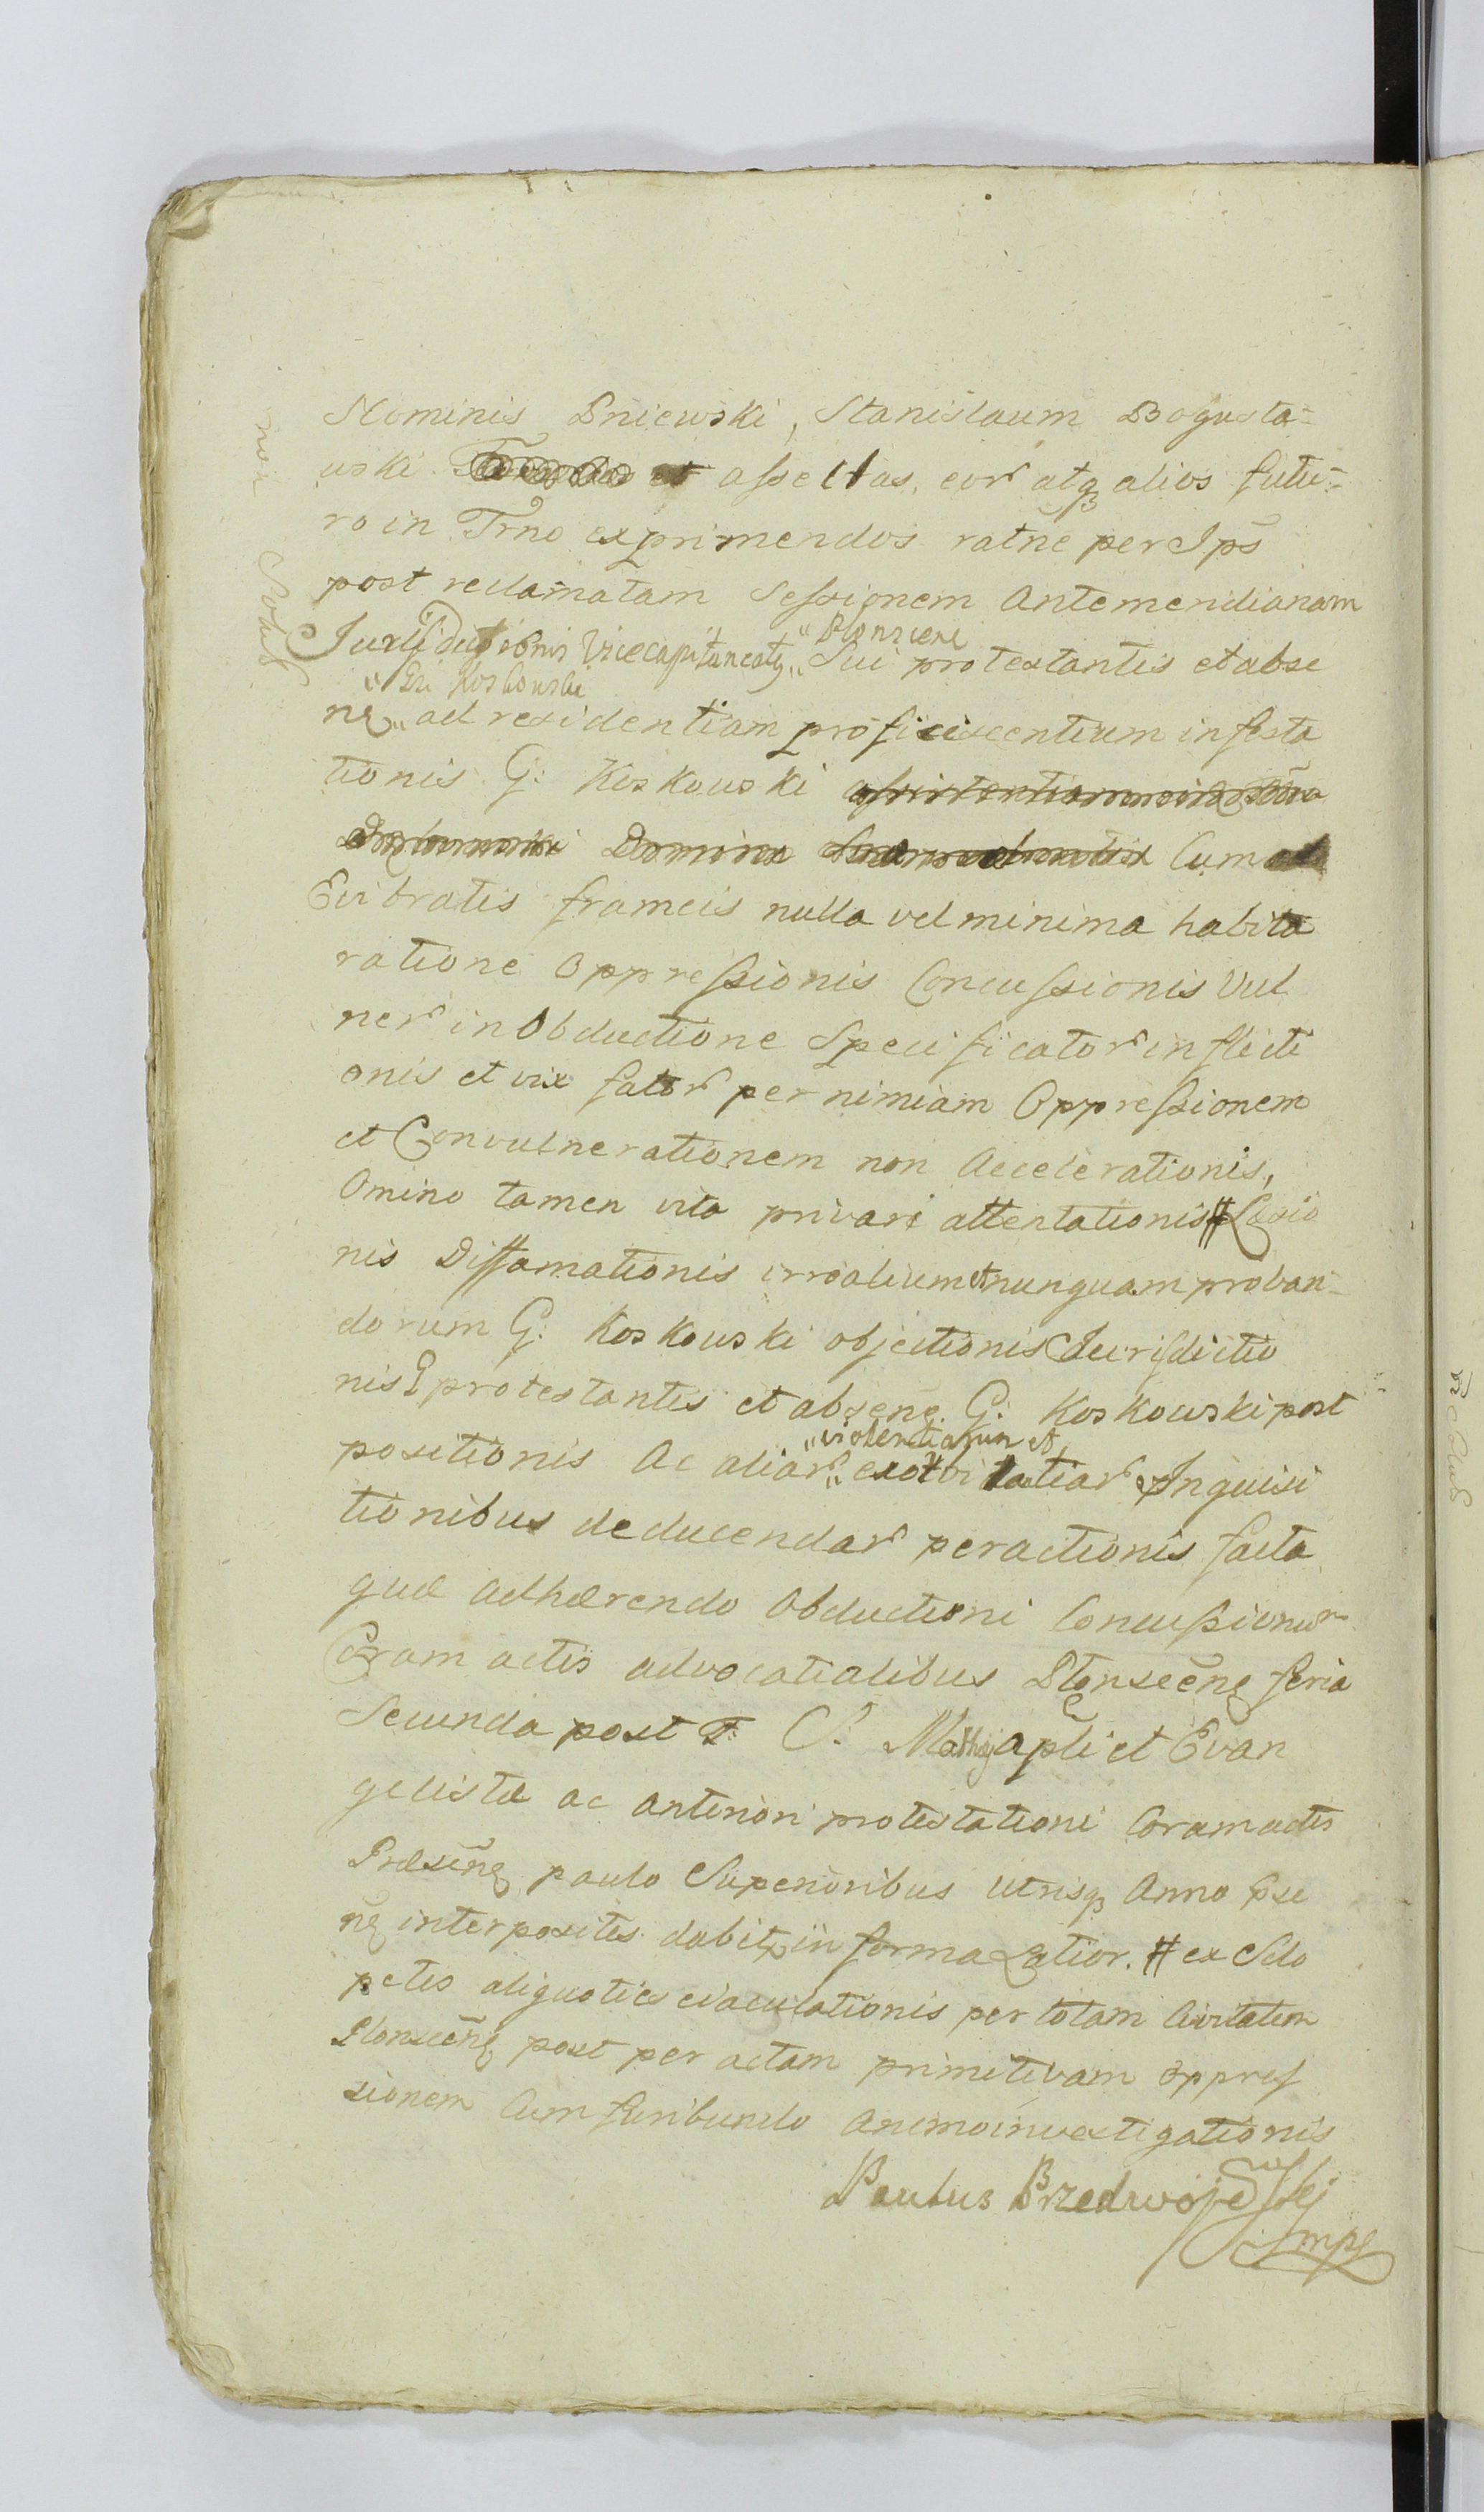 Nominis Pniewski, Stanislaum Bogusła-
wski assecłas, eor atq alios futu-
ro in Trno exprimendos ratne per Ips
post reclamatam Sessionem Antemeridianam
"Płonscen
Jurisdictionis Vicecapitaneat "Sui protestantis et abse
"Gsi Koskowski
ne" ad residentiam proficiscentium infesta
tionis G: Koskowski
Domina Cum
Evibratis frameis nulla vel minima habita
ratione Oppressionis Concussionis Vul
ner in Obductione Specificator inflicti
onis et vix fator per nimiam Oppressionem
et Convulnerationem non Accelerationis,
Omino tamen vita privari attentationis # Læsio
nis Diffamationis irroalium et nunquam proban-
dorum G: Koskowski objectionis Jurisdictio
nis protestantis et absene G: Koskowski post
"violentiarum et
positionis Ac aliar" exorbitatiar Inquisi
tionibus deducendar peractionis facta
quæ adhærendo Obductioni Concussionum
Coram actis advocatialibus Płonscene feria
Secunda post F: S. Mathæj Apli et Evan
gelistæ ac anteriori protestationi Coram actis
Præsene paulo Superioribus utrisq Anno Pse
ne interpositis dabit in forma Latior. # ex Sclo
petis aliquoties eiaculationis per totam Civitatem
Płonscene post peractam primitivam oppres
sionem Cum furibundo animo investigationis
Paulus Przedwojewski
mpp